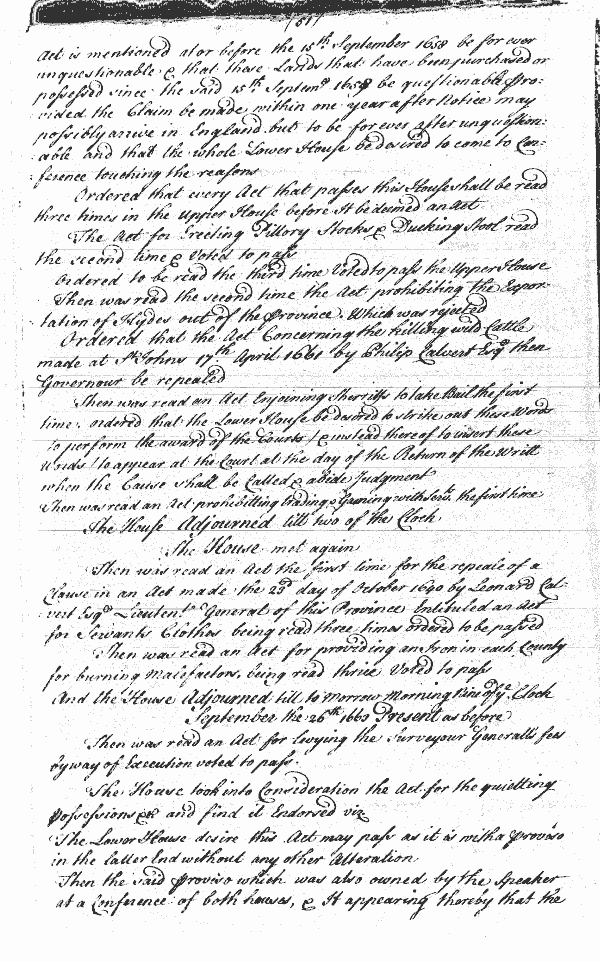 (61)
Act is mentioned at or before the 15th September 1658 be for ever
unquestionable & that these Lands that have been purchased or
possessed since the said 15th Septemr 1658 be questionable Pro:
vided the Claim be made within one year after Notice may
possibly arive in England but to be for ever after unquestion:
:able and that the whole Lower House be desired to come to Con:
:ference touching the reasons
Ordered that every Act that passes this House shall be read
three times in the Upper House before It be deemed an Act
The Act for Erecting Pillory Stocks & Ducking Stool read
the second time & Voted to pass
Ordered to be read the third time Voted to pass the Upper House
Then was read the second time the Act prohibiting the Expor:
tation of Hydes out of the Province, Which was rejected
Ordered that the Act Concerning the killing wild Cattle
made at St Johns 17th April 1661 by Philip Calvert Esqr then
Governour be repealed
Then was read an Act Enjoining Sherriffs to take Bail the first
time; ordered that the Lower House be desired to strike out these Words
to perform the award of the Courts / & instead thereof to insert these
Words / to appear at the Court at the day of the Return of the Writt
when the Cause shall be Called & abide Judgment
Then was read an Act prohibitting trading & Gaming with Servts. the first time
The House Adjourned till two of the Clock
The House met again
Then was read an Act the first time for the repeale of a
Clause in an Act made the 23d day of October 1640 by Leonard Cal:
:vert Esqr Lieutent General of this Province Entituled an Act
for Servants Clothes being read three times ordered to be passed
Then was read an Act for providing an Iron in each County
for burning Malefactors, being read thrice Voted to pass
And the House Adjourned till to Morrow Morning Nine of ye Clock
September the 26th 1663 Present as before
Then was read an Act for Levying the Surveyour Generalls fees
by way of Execution voted to pass.
The House took into Consideration the Act for the quietting
Possessions &c and find it Endorsed viz
The Lower House desire this Act may pass as it is with a Proviso
in the Latter End without any other Alteration
Then the said Proviso which was also owned by the Speaker
at a Conference of both houses, & It appearing thereby that the